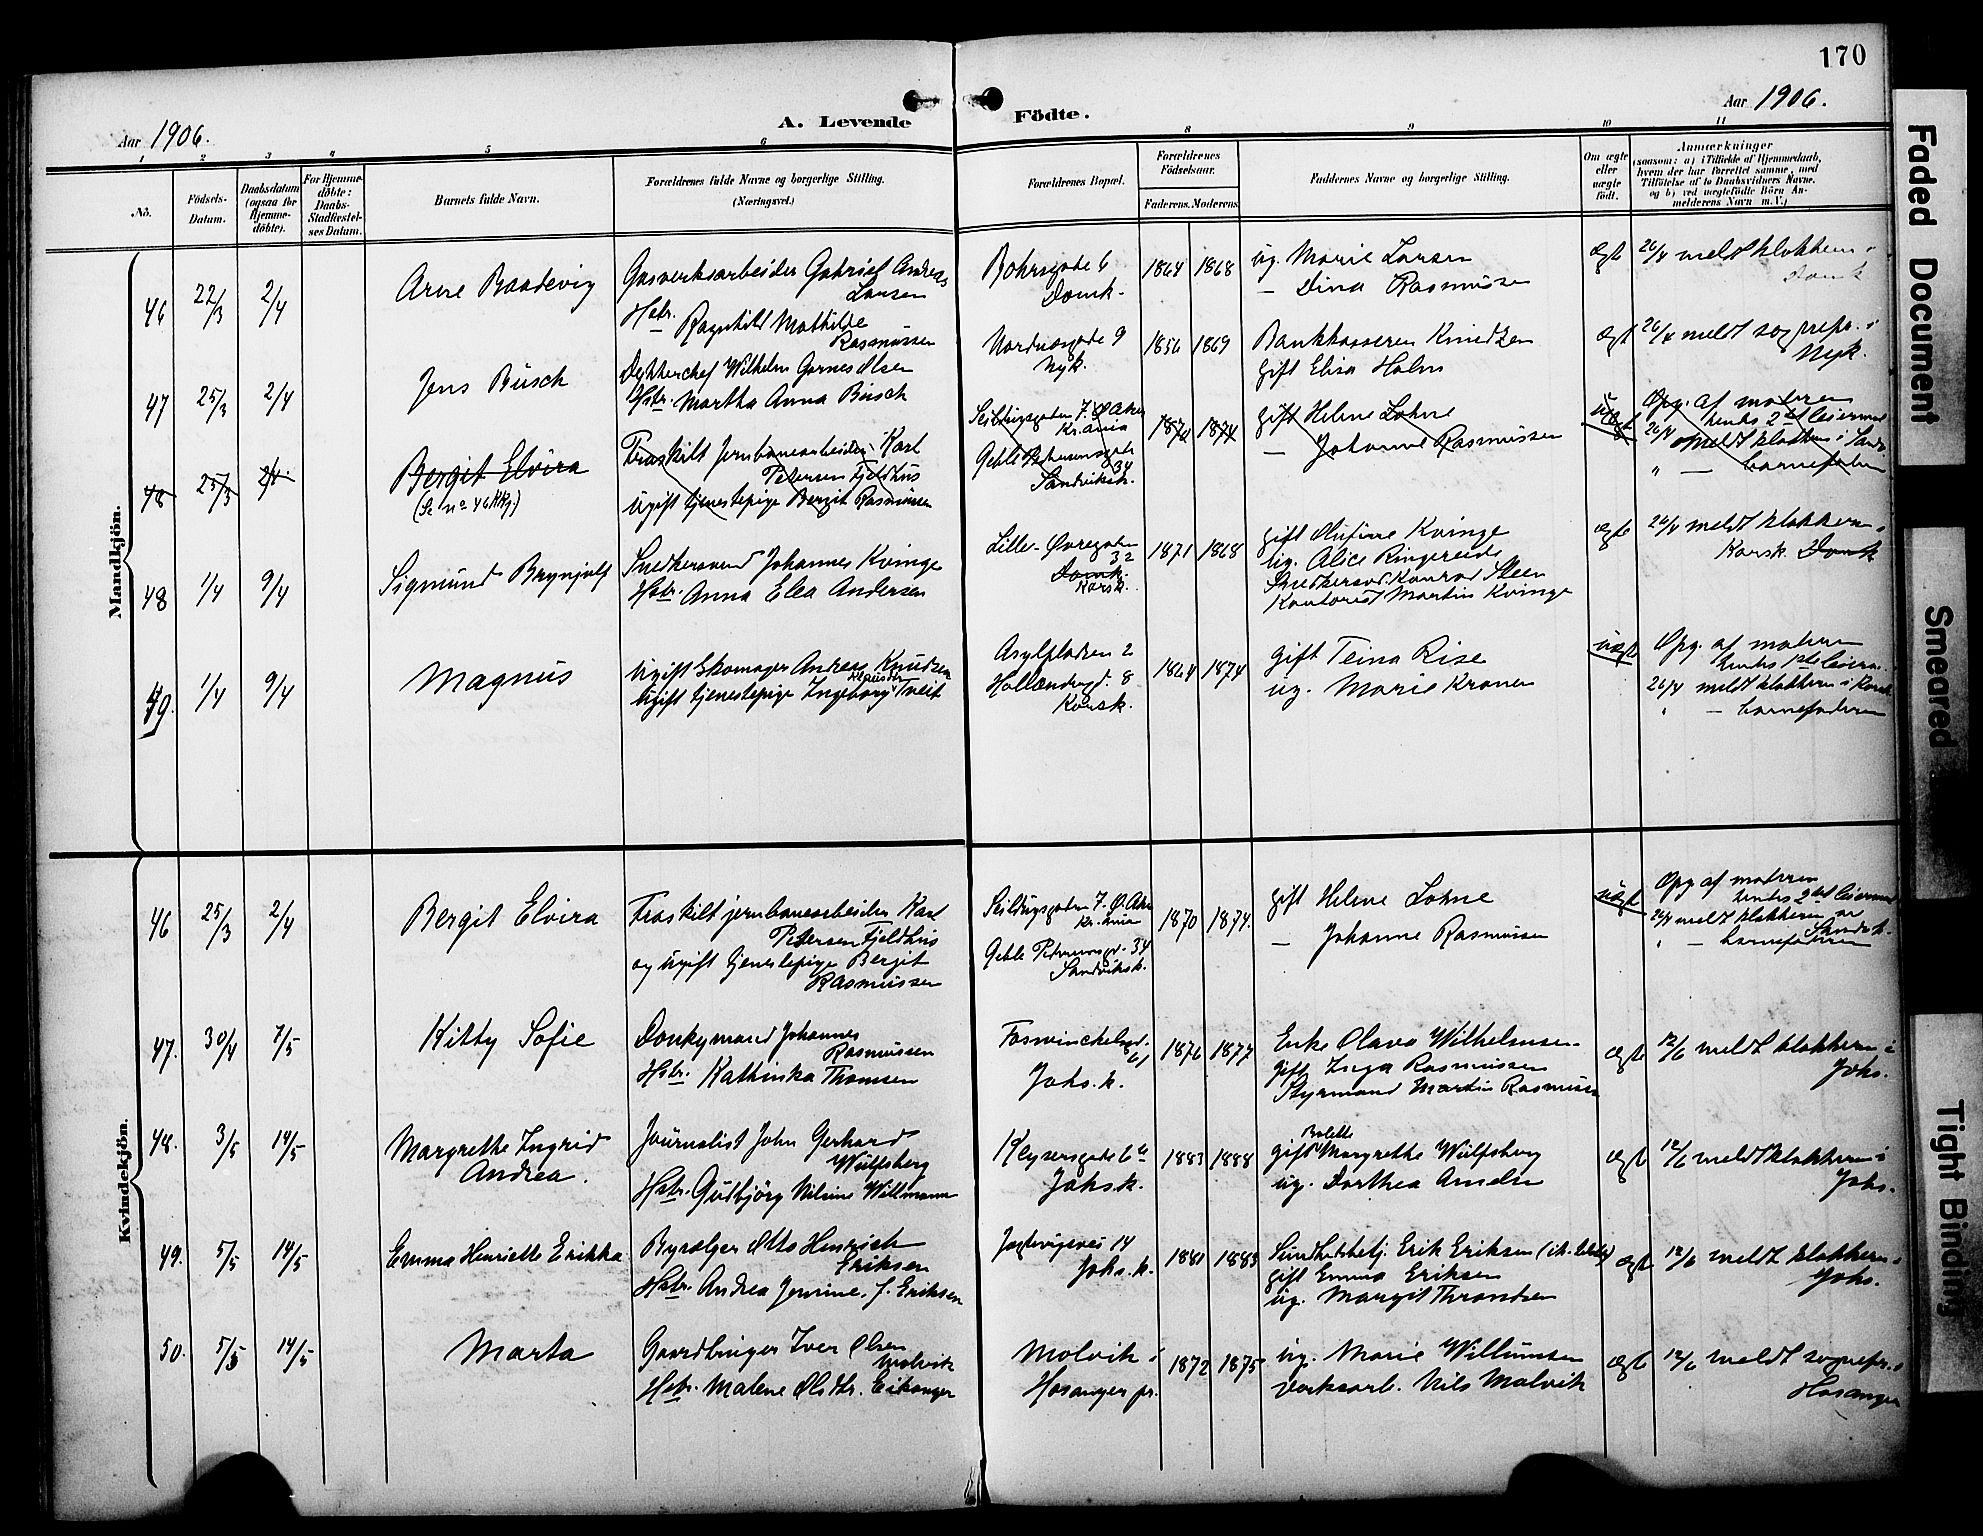 170
Aar 1906.
A. Levende
Födte.
Aar 1906.
1 2 3 4 5 6 8 9 10 11
No.
Födsels-Datum.
Daabsdatum (ogsaa for Hjemme-döbte).
For Hjemme-döbte: Daabs-Stadfæstel-ses Datum.
Barnets fulde Navn.
Forældrenes fulde Navne og borgerlige Stilling.
(Næringsvei.)
Forældrenes Bopæl.
Forældrenes Födselsaar.
Faderens. Moderens.
Faddernes Navne og borgerlige Stilling.
Om ægte eller uægte födt.
Anmærkninger
(saasom: a) i Tilfælde af Hjemmedaab, hvem der har forrettet samme, med Tilföielse af to Daabsvidners Navne, og b) ved uægtefödte Börn An-melderens Navn m. V.)
Mandkjön.
46 22/3 2/4 Arne Baadevig
Gasverksarbeider Gabriel Andreas
Larsen
Hstr. Ragnhild Mathilde
Rasmussen
Bohrsgade 6
Domk.
1864 1868
ug. Marie Larsen
— Dina Rasmussen
ægte
26/4 meldt klokkeren i
Domk
47 25/3 2/4 Jens Busch
Dykkerchef Wilhelm Garnes Olsen
Hstr. Martha Anna Busch
Nordnesgade 9
Nyk.
1856 1869
Bankkasserer Knudtzen
gift Elisa Holm
ægte
26/4 meldt sognepr. i
Nyk.
48 25/3 2/4 Bergit Elvira
(Se no 46 Kkj.)
Fraskilt Jernbanearbeider Karl
Petersen Fjeldhus
Ugift tjenestepige Bergit Rasmussen
Seildugsgaden 7. Ø. Aker
Kr.ania
Geble Pedersensgate
34
Sandviksk.
1870 1874
gift Helene Lohne
— Johanne Rasmussen
uægte
Opg. af moderen
hendes 2det leiermaal
26/4 meldt klokkeren i Sandv.
" — barnefaderen
48 1/4 9/4 Sigmund Brynjulf
Snedkersvend Johannes Kvinge
Hstr. Anna Elea Andersen
Lille-Øvregaden
32
Domk.
Korsk.
1871 1868
gift Rufine Kvinge
ug. Alice Ringereide
Snedkersvd. Konrad Steen
Kontorist Martin Kvinge
ægte
26/4 meldt klokkeren i
Korsk. Domk
49. 1/4 9/4 Magnus
Ugift Skomager Andreas Knudsen
Ugift tjenestepige Ingeborg Tveit
Asylpladsen 2
Hollændergd. 8
Korsk.
1864 1874
gift Teina Rise
ug. Marie Kroner
uægte
Opg. af moderen
hendes 1ste leierm.
26/4 meldt klokkeren i Korsk
" — barnefaderen
Kvindekjön.
46 25/3 2/4 Bergit Elvira
Fraskilt jernbanearbeider Karl
Petersen Fjeldhus
og ugift tjenestepige Bergit
Rasmussen
Seildugsgaden 7. Ø. Aker
Kr.ania
Geble Pedersensgd. 34
Sandviksk.
1870 1874.
gift Helene Lohne
— Johanne Rasmussen
uægte
Opg af moderen
hendes 2det leiermaal
26/4 meldt klokkeren
Sandvk.
" — barnefaderen
47. 30/4 7/5 Kitty Sofie
Donkymand Johannes
Rasmussen
Hstr. Kathinka Thomsen
Fosswinckelsgd.
61
Johs. k.
1876 1877
Enke Olava Wilhelmsen
gift Inga Rasmussen
Styrmand Martin Rasmussen
ægte
12/6 meldt klokkeren i
Johs.
48. 3/5 14/5 Margrethe Ingrid
Andrea.
Journalist John Gerhard
Wulfsberg
Hstr. Gudbjörg Nilsine Willmann
Keysersgade 6 a
Johsk.
1883 1888
Bolette
gift Margrethe Wulfsberg
ug. Dorthea Ameln
ægte
12/6 meldt klokkeren i
Johs.
49. 5/5 14/5 Emma Henriette Erikka
Bysælger Otto Henrich
Eriksen
Hstr. Andrea Jensine, f. Eriksen
Jægtevigsvei 14
Johs. k.
1881 1883
Sundhetsbetj. Erik Eriksen
gift Emma Eriksen
ug. Margit Throndsen
ægte
12/6 meldt klokkeren i
Johs.
50. 5/5 14/5 Marta
Gaardbruger Iver Olsen
Molvik
Hstr. Malene Olsdtr. Eikanger
Molvik i
Hosanger pr.
1872 1875
ug. Marie Willumsen
Verksarb. Nils Molvik
ægte
12/6 meldt sognepr. i
Hosanger
Faded Document
Smeared
Tight Binding